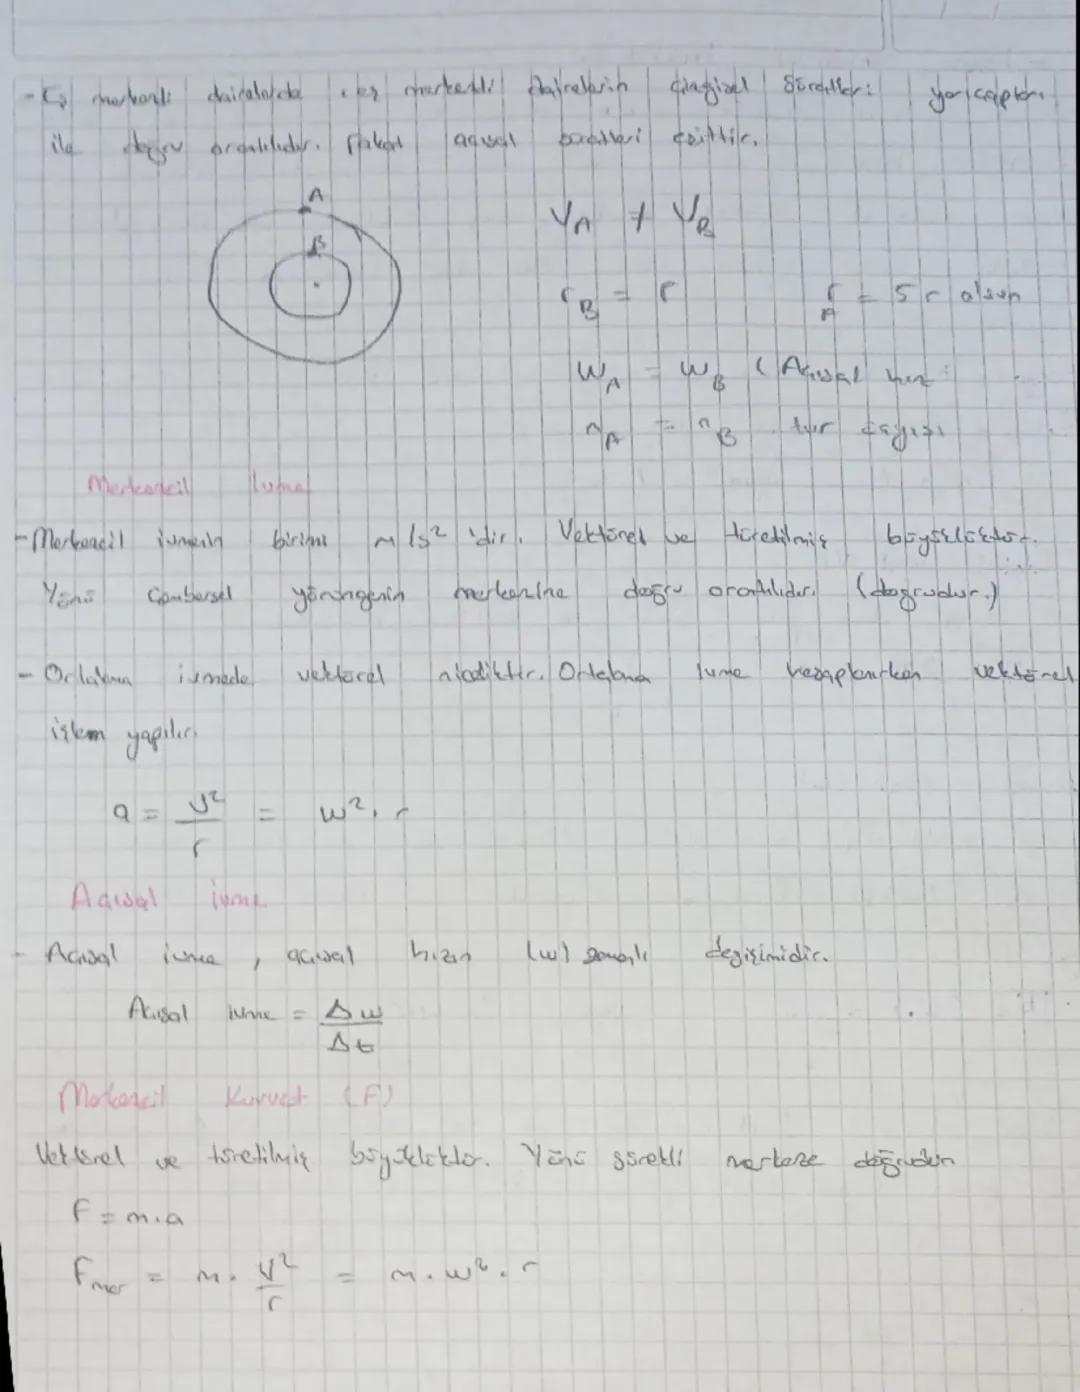 - Eş merkezli dairelerde, eş merkezli dairelerin çizgisel süratleri yarıçapları
ile doğru orantılıdır. Fakat açısal süratleri eşittir.
A
B
VA ≠ VB
rB = r rA = 5r olsun
WA = WB (Açısal hız
nA = nB tur sayısı
Merkezcil İvme
- Merkezcil ivmenin birimi m/s² 'dir. Vektörel ve türetilmiş büyüklüktür.
Yönü Çembersel yörüngenin merkezine doğru orantılıdır. (doğrudur.)
- Ortalama ivmede vektörel niceliktir. Ortalama ivme hesaplanırken vektörel
işlem yapılır.
a = V²/r = w².r
Açısal ivme
- Açısal ivme, açısal hızın (w) zamanlı değişimidir.
Açısal ivme = Δw/Δt
Merkezcil Kuvvet (F)
Vektörel ve türetilmiş büyüklüktür. Yönü sürekli merkeze doğrudur
F = m.a
Fmer = m. V²/r = m.w².r